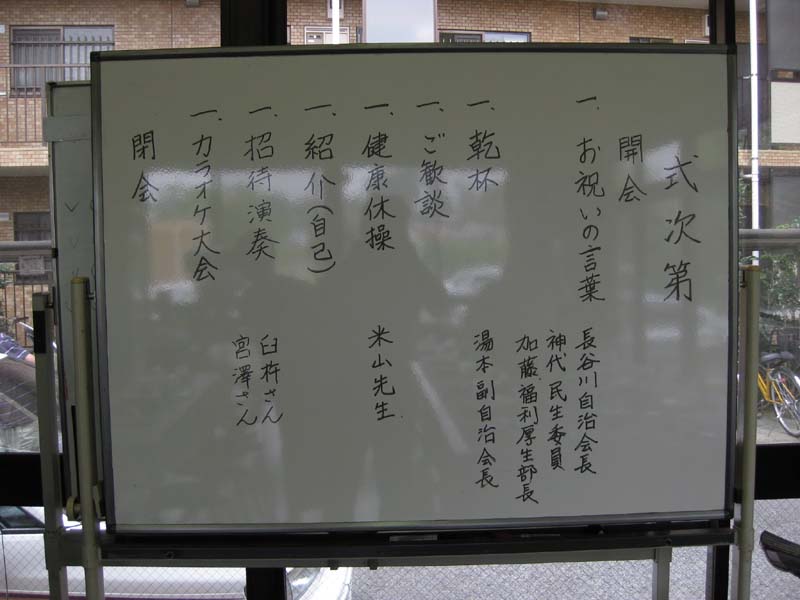 式次第
開会
一、お祝いの言葉 長谷川自治会長
神代民生委員
加藤福利厚生部長
一、乾杯 湯本副自治会長
一、ご歓談
一、健康休操 米山先生
一、紹介(自己)
一、招待演奏 臼杵さん
宮澤さん
一、カラオケ大会
閉会